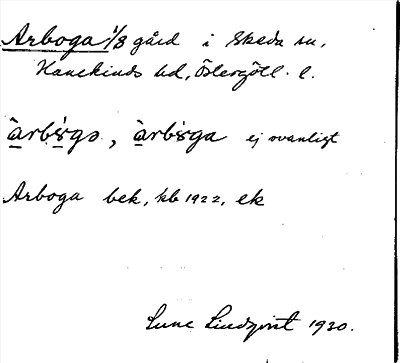 Arboga 1/8 gård i Skeda sn,
Hanekinds hd, Östergötl. l.
àrbɷgə, àrbɷga ej ovanligt
Arboga bek, kb 1922, ek
Sune Lindqvist 1930.